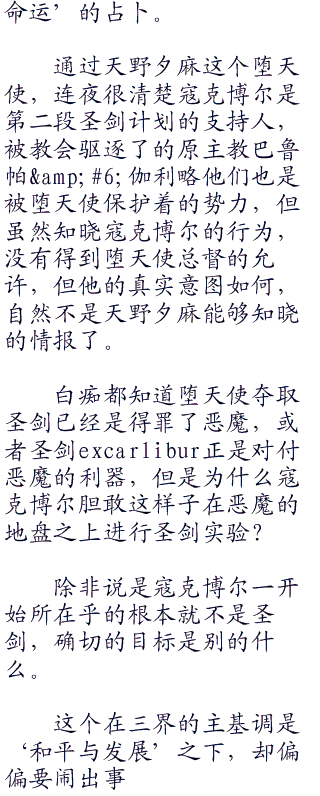 命运’的占卜。
通过天野夕麻这个堕天
使，连夜很清楚寇克博尔是
第二段圣剑计划的支持人，
被教会驱逐了的原主教巴鲁
帕&amp;#6;伽利略他们也是
被堕天使保护着的势力，但
虽然知晓寇克博尔的行为，
没有得到堕天使总督的允
许，但他的真实意图如何，
自然不是天野夕麻能够知晓
的情报了。
白痴都知道堕天使夺取
圣剑已经是得罪了恶魔，或
者圣剑excarlibur正是对付
恶魔的利器，但是为什么寇
克博尔胆敢这样子在恶魔的
地盘之上进行圣剑实验？
除非说是寇克博尔一开
始所在乎的根本就不是圣
剑，确切的目标是别的什
么。
这个在三界的主基调是
‘和平与发展’之下，却偏
偏要闹出事